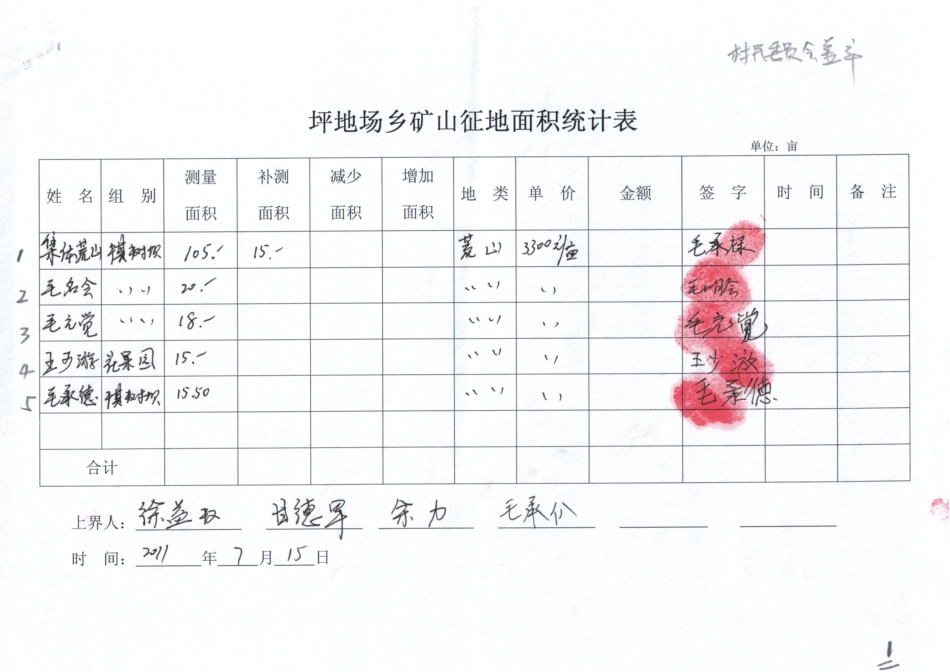 村民委员会盖章
坪地场乡矿山征地面积统计表
单位：亩
姓 名 组 别 测量面积 补测面积 减少面积 增加面积 地 类 单 价 金额 签 字 时 间 备 注
1 集体荒山 棋树坝 105.- 15.- 荒山 3300元/亩 毛承禄
2 毛名会 〃 20.- 〃 〃 毛明会
3 毛元觉 〃 18.- 〃 〃 毛元觉
4 王少游 花果园 15.- 〃 〃 王少游
5 毛承德 棋树坝 15.50 〃 〃 毛承德
合计
上界人：徐益 甘德军 余力 毛承
时 间：2011 年 7 月 15 日
1